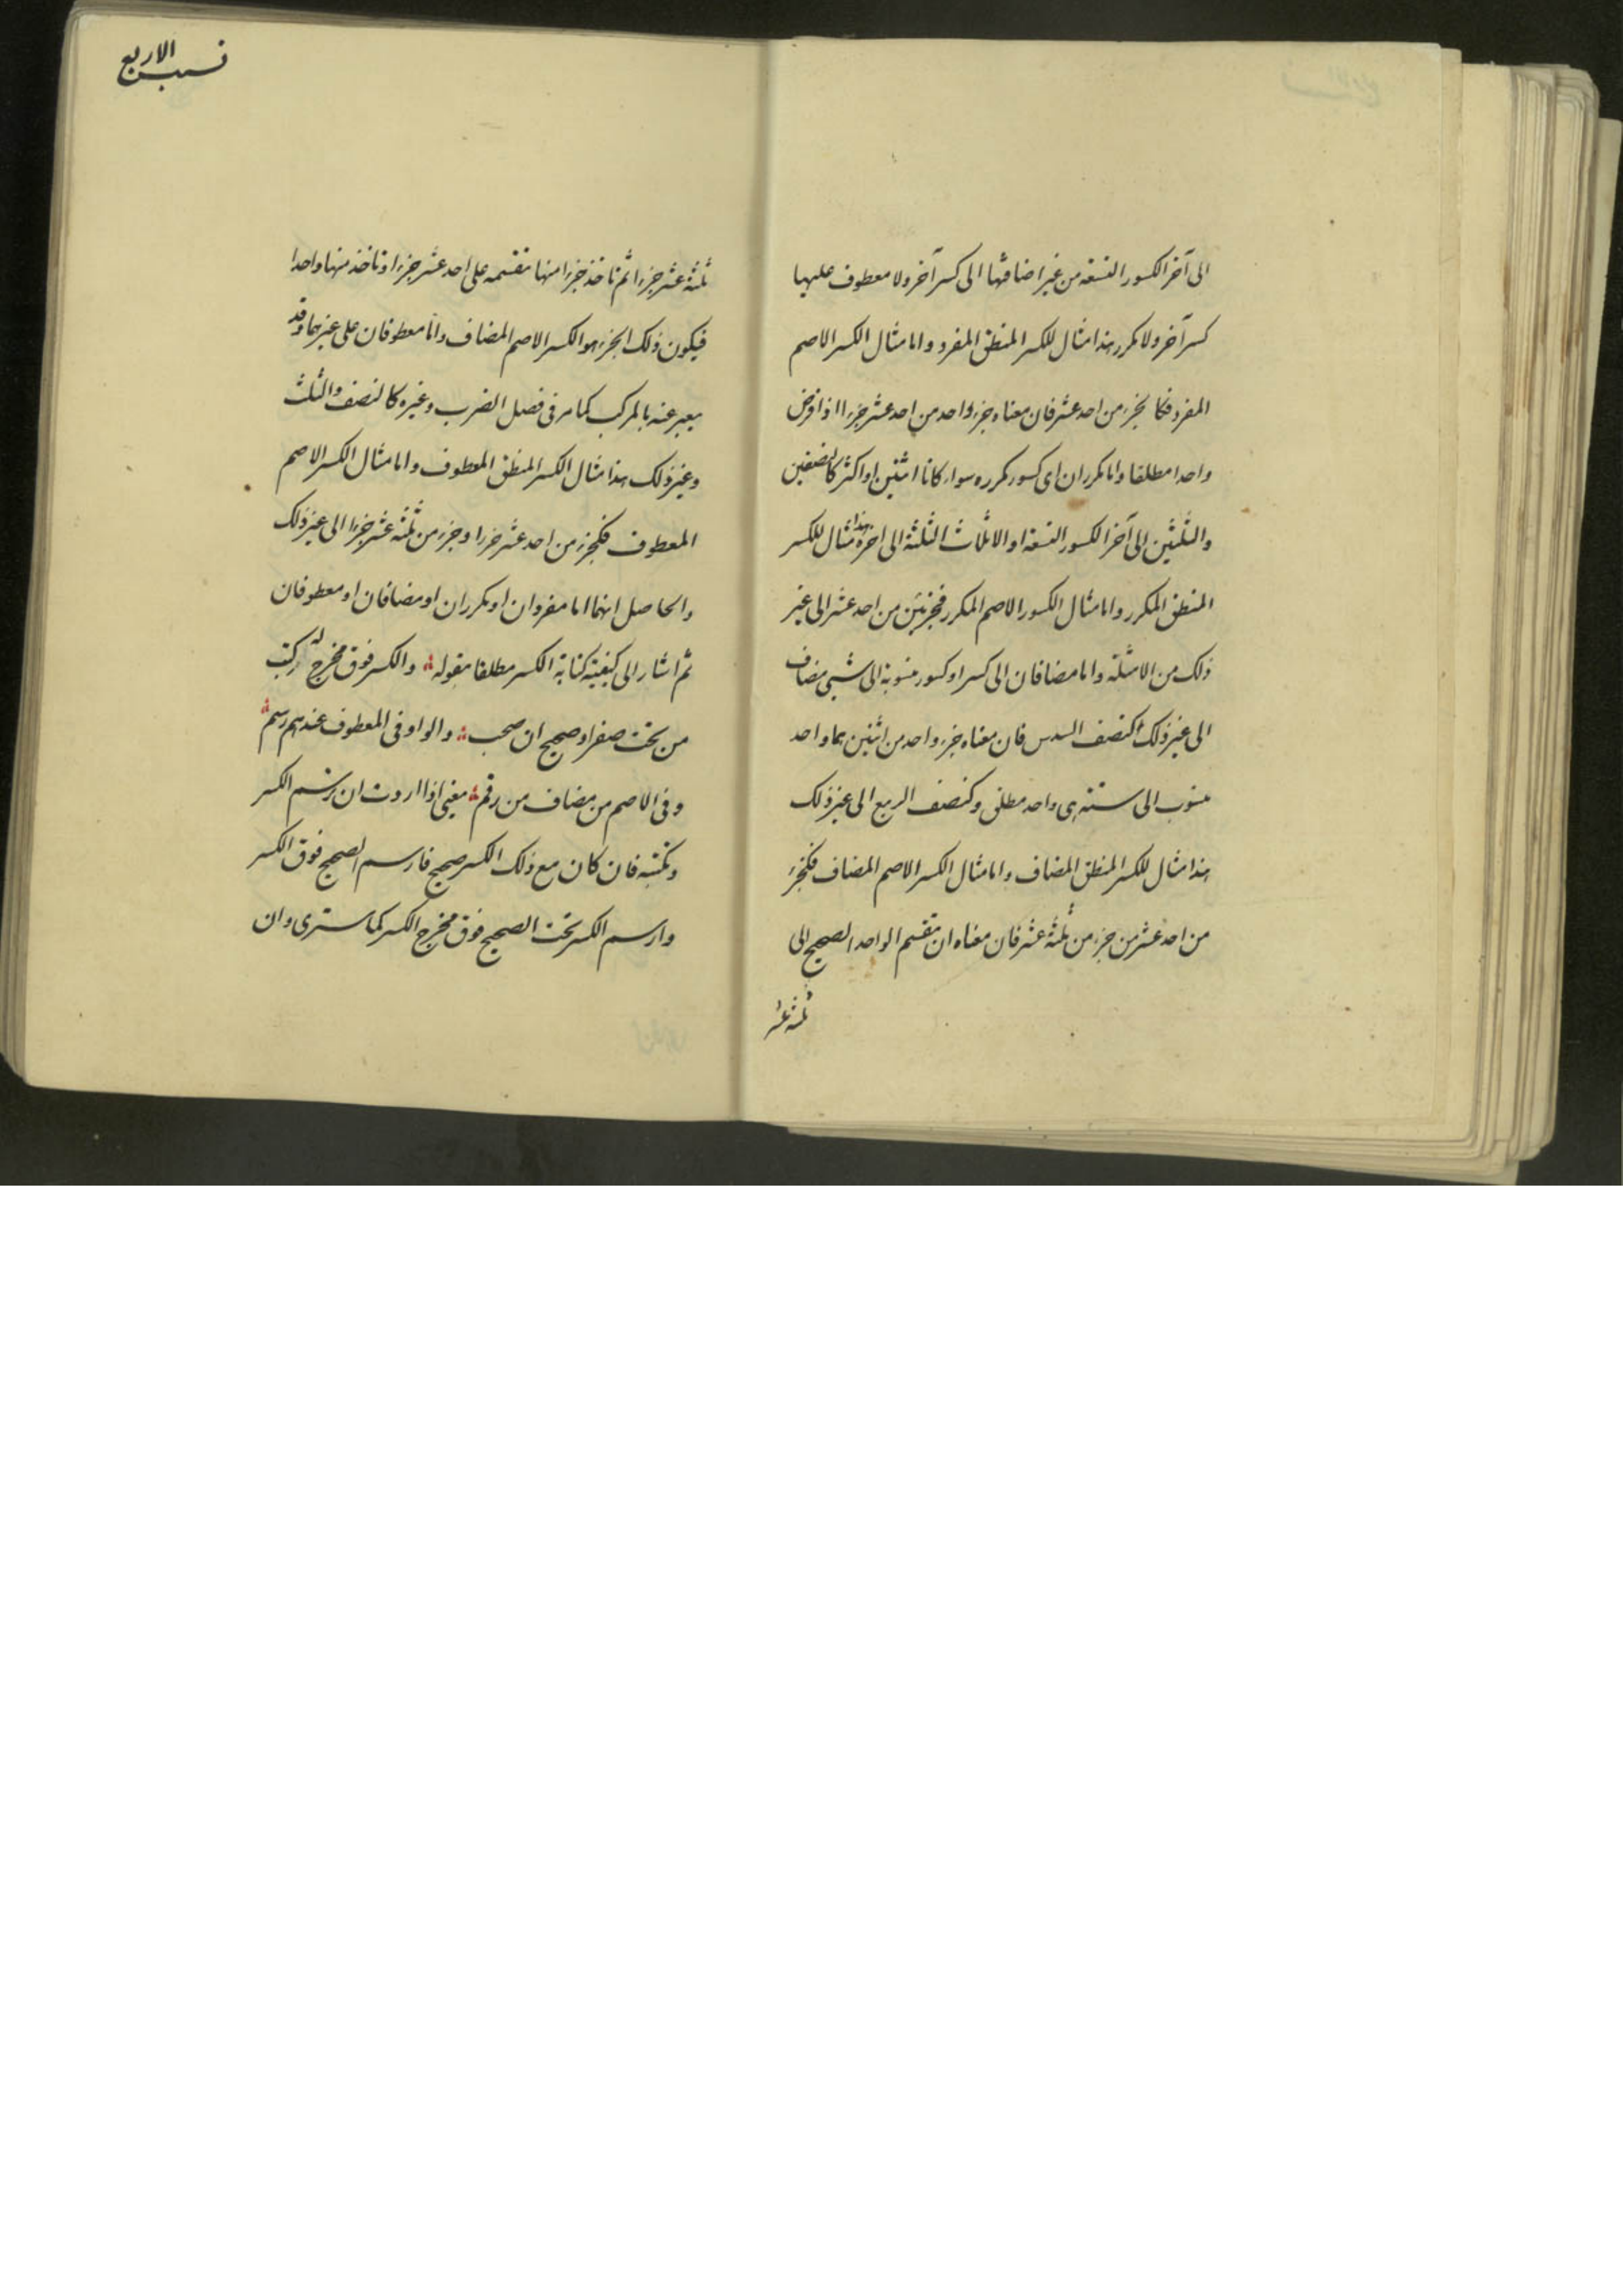 الى آخر الكسور التسعة من غير اضافتها الى كسر آخر ولا معطوف عليها
كسر آخر ولا مكرر هذا مثال للكسر المنطق المفرد واما مثال الكسر الاصم
المفرد فكالجزء من احد عشر فان معناه جزء واحد من احد عشر جزءا اذا فرض
واحدا مطلقا واما مكرران اى كسور مكرره سواء كانا اثنين او اكثر كالنصفين
والثلثين الى آخر الكسور التسعة او الاثلاث الثلثة الى اخره هذا مثال للكسر
المنطق المكرر واما مثال الكسور الاصم المكرر فكجزئين من احد عشر الى غير
ذلك من الامثلة واما مضافان الى كسر او كسور منسوبة الى شىء مضاف
الى غير ذلك كنصف السدس فان معناه جزء واحد من اثنين هما واحد
منسوب الى ستة هى واحد مطلق وكنصف الربع الى غير ذلك
هذا مثال للكسر المنطق المضاف واما مثال الكسر الاصم المضاف فكجزء
من احد عشر من جزء من ثلثة عشر فان معناه ان تقسم الواحد الصحيح الى
ثلثة عشر
نسب الاربع
ثلثة عشر جزءا ثم تاخذ جزءا منها تقسمه على احد عشر جزءا وتاخذ منها واحدا
فيكون ذلك الجزء هو الكسر الاصم المضاف واما معطوفان على غيرهما وقد
يعبر عنه بالمركب كما مر فى فصل الضرب وغيره كالنصف والثلث
وغير ذلك هذا مثال الكسر المنطق المعطوف واما مثال الكسر الاصم
المعطوف فكجزء من احد عشر جزءا وجزء من ثلثة عشر جزءا الى غير ذلك
والحاصل انهما اما مفردان او مكرران او مضافان او معطوفان
ثم اشار الى كيفية كتابة الكسر مطلقا بقوله والكسر فوق مخرج له ركب
من تحت صفر او صحيح ان صحب والواو فى المعطوف عندهم رسم
وفى الاصم من مضاف من رقم يعنى اذا اردت ان ترسم الكسر
وتكتبه فان كان مع ذلك الكسر صحيح فارسم الصحيح فوق الكسر
وارسم الكسر تحت الصحيح فوق مخرج الكسر كما سترى وان